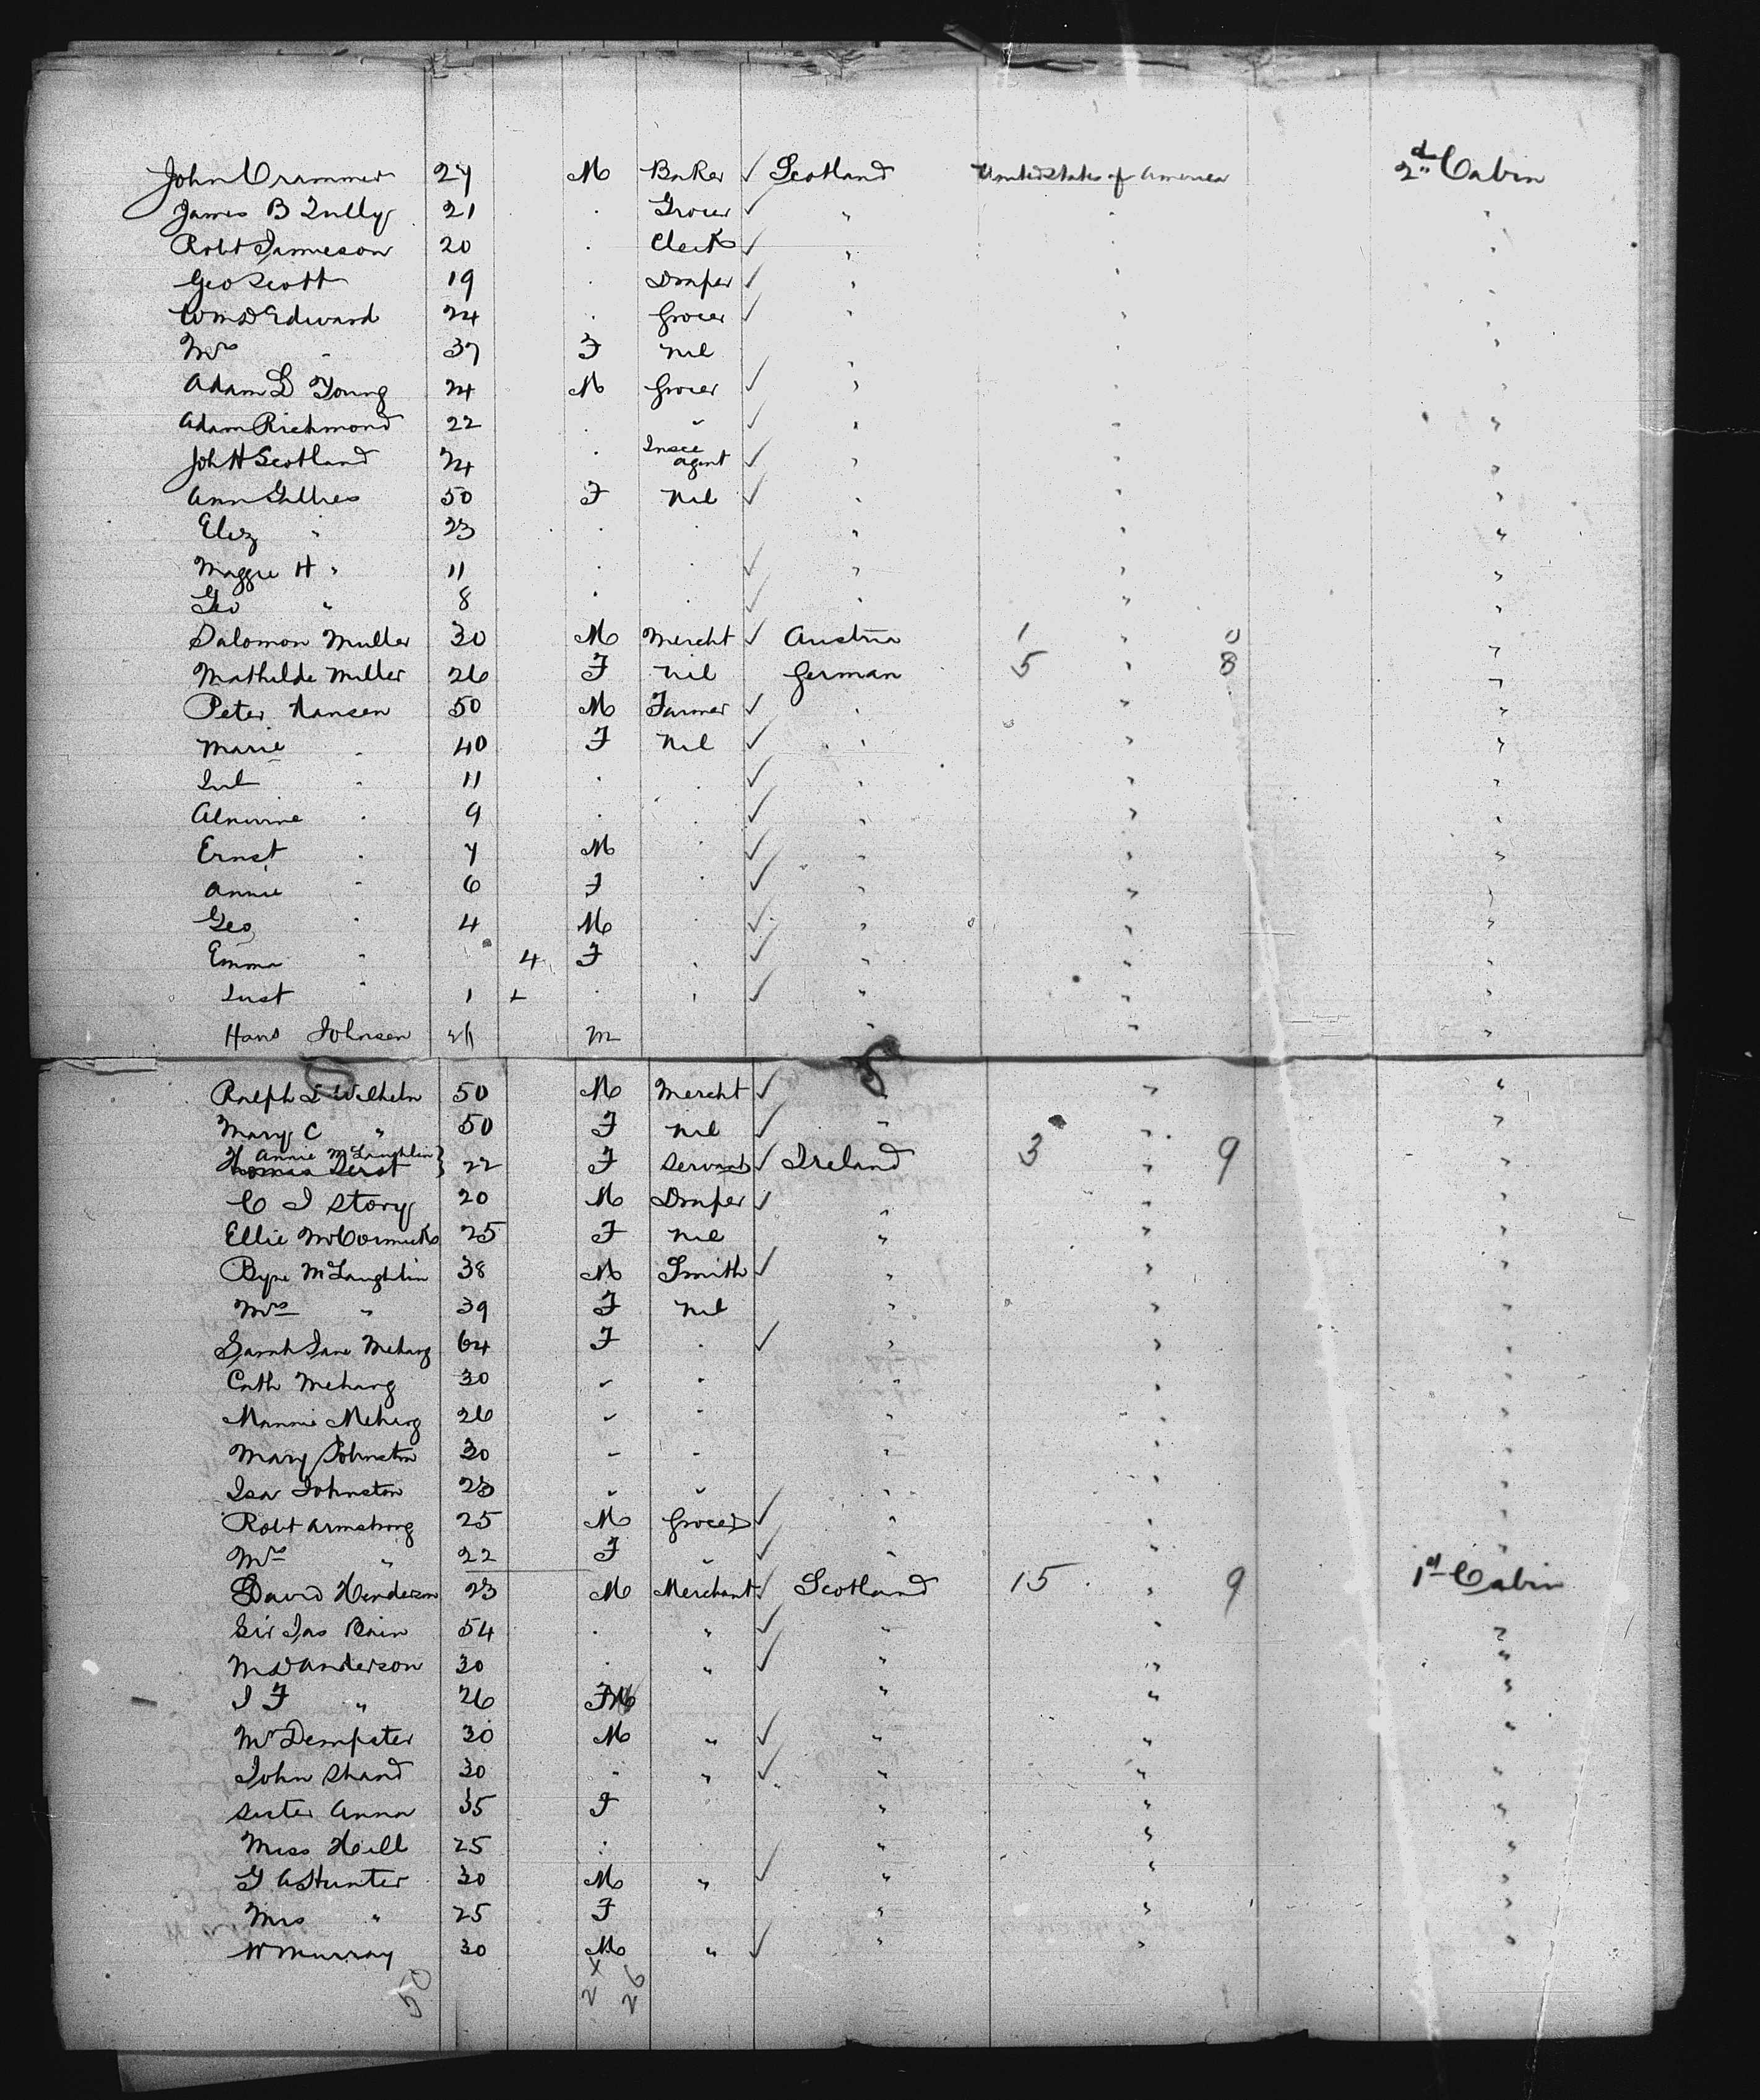 John Crammer 27 M Baker ✓ Scotland United States of America 2nd Cabin
James B Tully 21 . Grocer ✓ " " "
Robt Jamieson 20 . Clerk ✓ " " "
Geo Scott 19 . Draper ✓ " " "
Wm D Edward 24 . Grocer ✓ " " "
Mrs " 37 F nil " " "
Adam L Young 24 M Grocer ✓ " " "
Adam Richmond 22 . " ✓ " " "
Joh H Scotland 24 . Insce agent ✓ " " "
Ann Gillies 50 F nil ✓ " " "
Eliz " 23 . . " " "
Maggie H " 11 . . ✓ " " "
Geo " 8 . . ✓ " " "
Salomon Muller 30 M Mercht ✓ Austria 1 " 0 "
Mathilde Miller 26 F nil German 5 " 8 "
Peter Hansen 50 M Farmer ✓ " " "
Marie " 40 F nil ✓ " " "
Jul " 11 . . ✓ " " "
" 9 . . ✓ " " "
Ernst " 7 M . ✓ " " "
Annie " 6 F . ✓ " " "
Geo " 4 M . ✓ " " "
Emma " 4 F . ✓ " " "
Just " 1 . . ✓ " " "
Hans Johnsen M " " "
Ralph L Wilhelm 50 M Mercht ✓ " " "
Mary C " 50 F nil ✓ " " "
Annie McLaughlin 22 F Servant ✓ Ireland 3 " 9 "
C J Story 20 M Draper ✓ " " "
Ellie McCormick 25 F nil " " "
McLaughlin 38 M Smith ✓ " " "
Mrs " 39 F nil " " "
Sarah Jane Meharg 64 F . ✓ " " "
Cath Meharg 30 " " " " "
Mannie Meharg 26 " " " " "
Mary Johnston 30 " " " " "
Isa Johnston 23 " " " " "
Robt Armstrong 25 M Grocer ✓ " " "
Mrs " 22 F " ✓ " " "
David Henderson 23 M Merchant ✓ Scotland 15 " 9 1st Cabin
Sir Jas Bain 54 . " ✓ " " "
M D Anderson 30 . " ✓ " " "
J F " 26 " " "
Mr Dempster 30 M " ✓ " " "
John Shand 30 " " ✓ " " "
Sister Anna 35 F " " "
Miss Hill 25 . " " "
G A Hunter 30 M " ✓ " " "
Mrs " 25 F " " "
W Murray 30 M " ✓ " " "
50 24 26